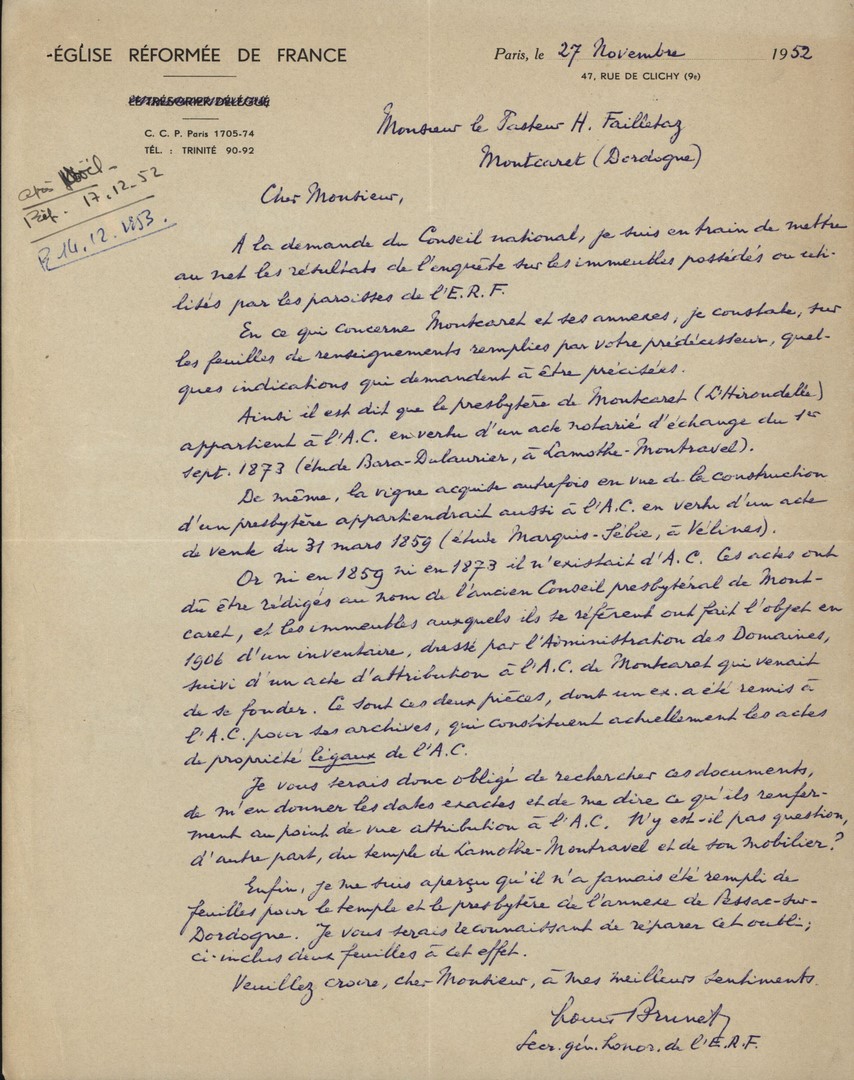 -ÉGLISE RÉFORMÉE DE FRANCE
Paris, le 27 Novembre 1952
47, RUE DE CLICHY (9e)
LE TRÉSORIER DÉLÉGUÉ
C. C. P. Paris 1705-74
TÉL. : TRINITÉ 90-92
Monsieur le Pasteur H. Failletaz
Montcaret (Dordogne)
après Noël-
Réf. 17.12.52
R 14.12.1953.
Cher Monsieur,
A la demande du Conseil national, je suis en train de mettre
au net les résultats de l'enquête sur les immeubles possédés ou uti-
lisés par les paroisses de l'E.R.F.
En ce qui concerne Montcaret et ses annexes, je constate, sur
les feuilles de renseignements remplies par votre prédécesseur, quel-
ques indications qui demandent à être précisées.
Ainsi il est dit que le presbytère de Montcaret (L'Hirondelle)
appartient à l'A.C. en vertu d'un acte notarié d'échange du 1er
sept. 1873 (étude Bara-Dulaurier, à Lamothe-Montravel).
De même, la vigne acquise autrefois en vue de la construction
d'un presbytère appartiendrait aussi à l'A.C. en vertu d'un acte
de vente du 31 mars 1859 (étude Marquis-Sébie, à Vélines).
Or ni en 1859 ni en 1873 il n'existait d'A.C. Ces actes ont
dû être rédigés au nom de l'ancien Conseil presbytéral de Mont-
caret, et les immeubles auxquels ils se réfèrent ont fait l'objet en
1906 d'un inventaire, dressé par l'Administration des Domaines,
suivi d'un acte d'attribution à l'A.C. de Montcaret qui venait
de se fonder. Ce sont ces deux pièces, dont un ex. a été remis à
l'A.C. pour ses archives, qui constituent actuellement les actes
de propriété légaux de l'A.C.
Je vous serais donc obligé de rechercher ces documents,
de m'en donner les dates exactes et de me dire ce qu'ils renfer-
ment au point de vue attribution à l'A.C. N'y est-il pas question,
d'autre part, du temple de Lamothe-Montravel et de son mobilier ?
Enfin, je me suis aperçu qu'il n'a jamais été rempli de
feuilles pour le temple et le presbytère de l'annexe de Pessac-sur-
Dordogne. Je vous serais reconnaissant de réparer cet oubli ;
ci-inclus deux feuilles à cet effet.
Veuillez croire, cher Monsieur, à mes meilleurs sentiments.
Louis Brunet
Secr. gén. honor. de l'E.R.F.